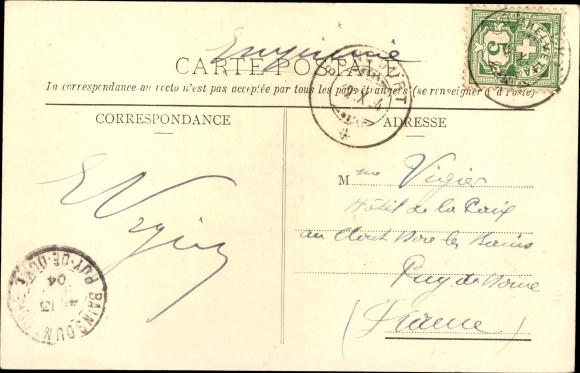 Imprimerie
CARTE POSTALE
La correspondance au recto n'est pas acceptée par tous les pays étrangers (se renseigner à la Poste)
CORRESPONDANCE
ADRESSE
E Vigier
Mme Vigier
Hôtel de la Paix
au Mont Dore les Bains
Puy de Dome
(France)
5
HELVETIA
PUY-DE-DOME
04